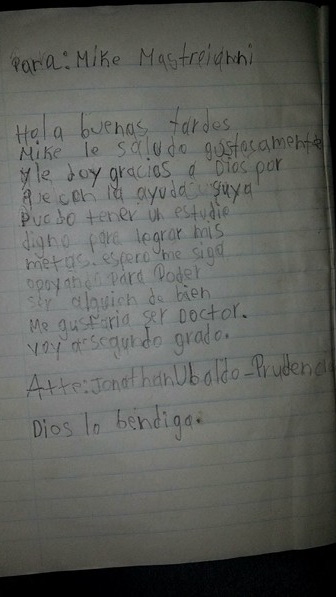 Para: Mike Mastreianni
Hola buenas tardes
Mike le saludo gustosamente
y le doy gracias a Dios por
que con la ayuda suya
puedo tener un estudio
digno para lograr mis
metas. espero me siga
apoyando para poder
ser alguien de bien
Me gustaria ser Doctor.
voy a segundo grado.
Atte: Jonathan Ubaldo-Prudencio
Dios lo bendiga.